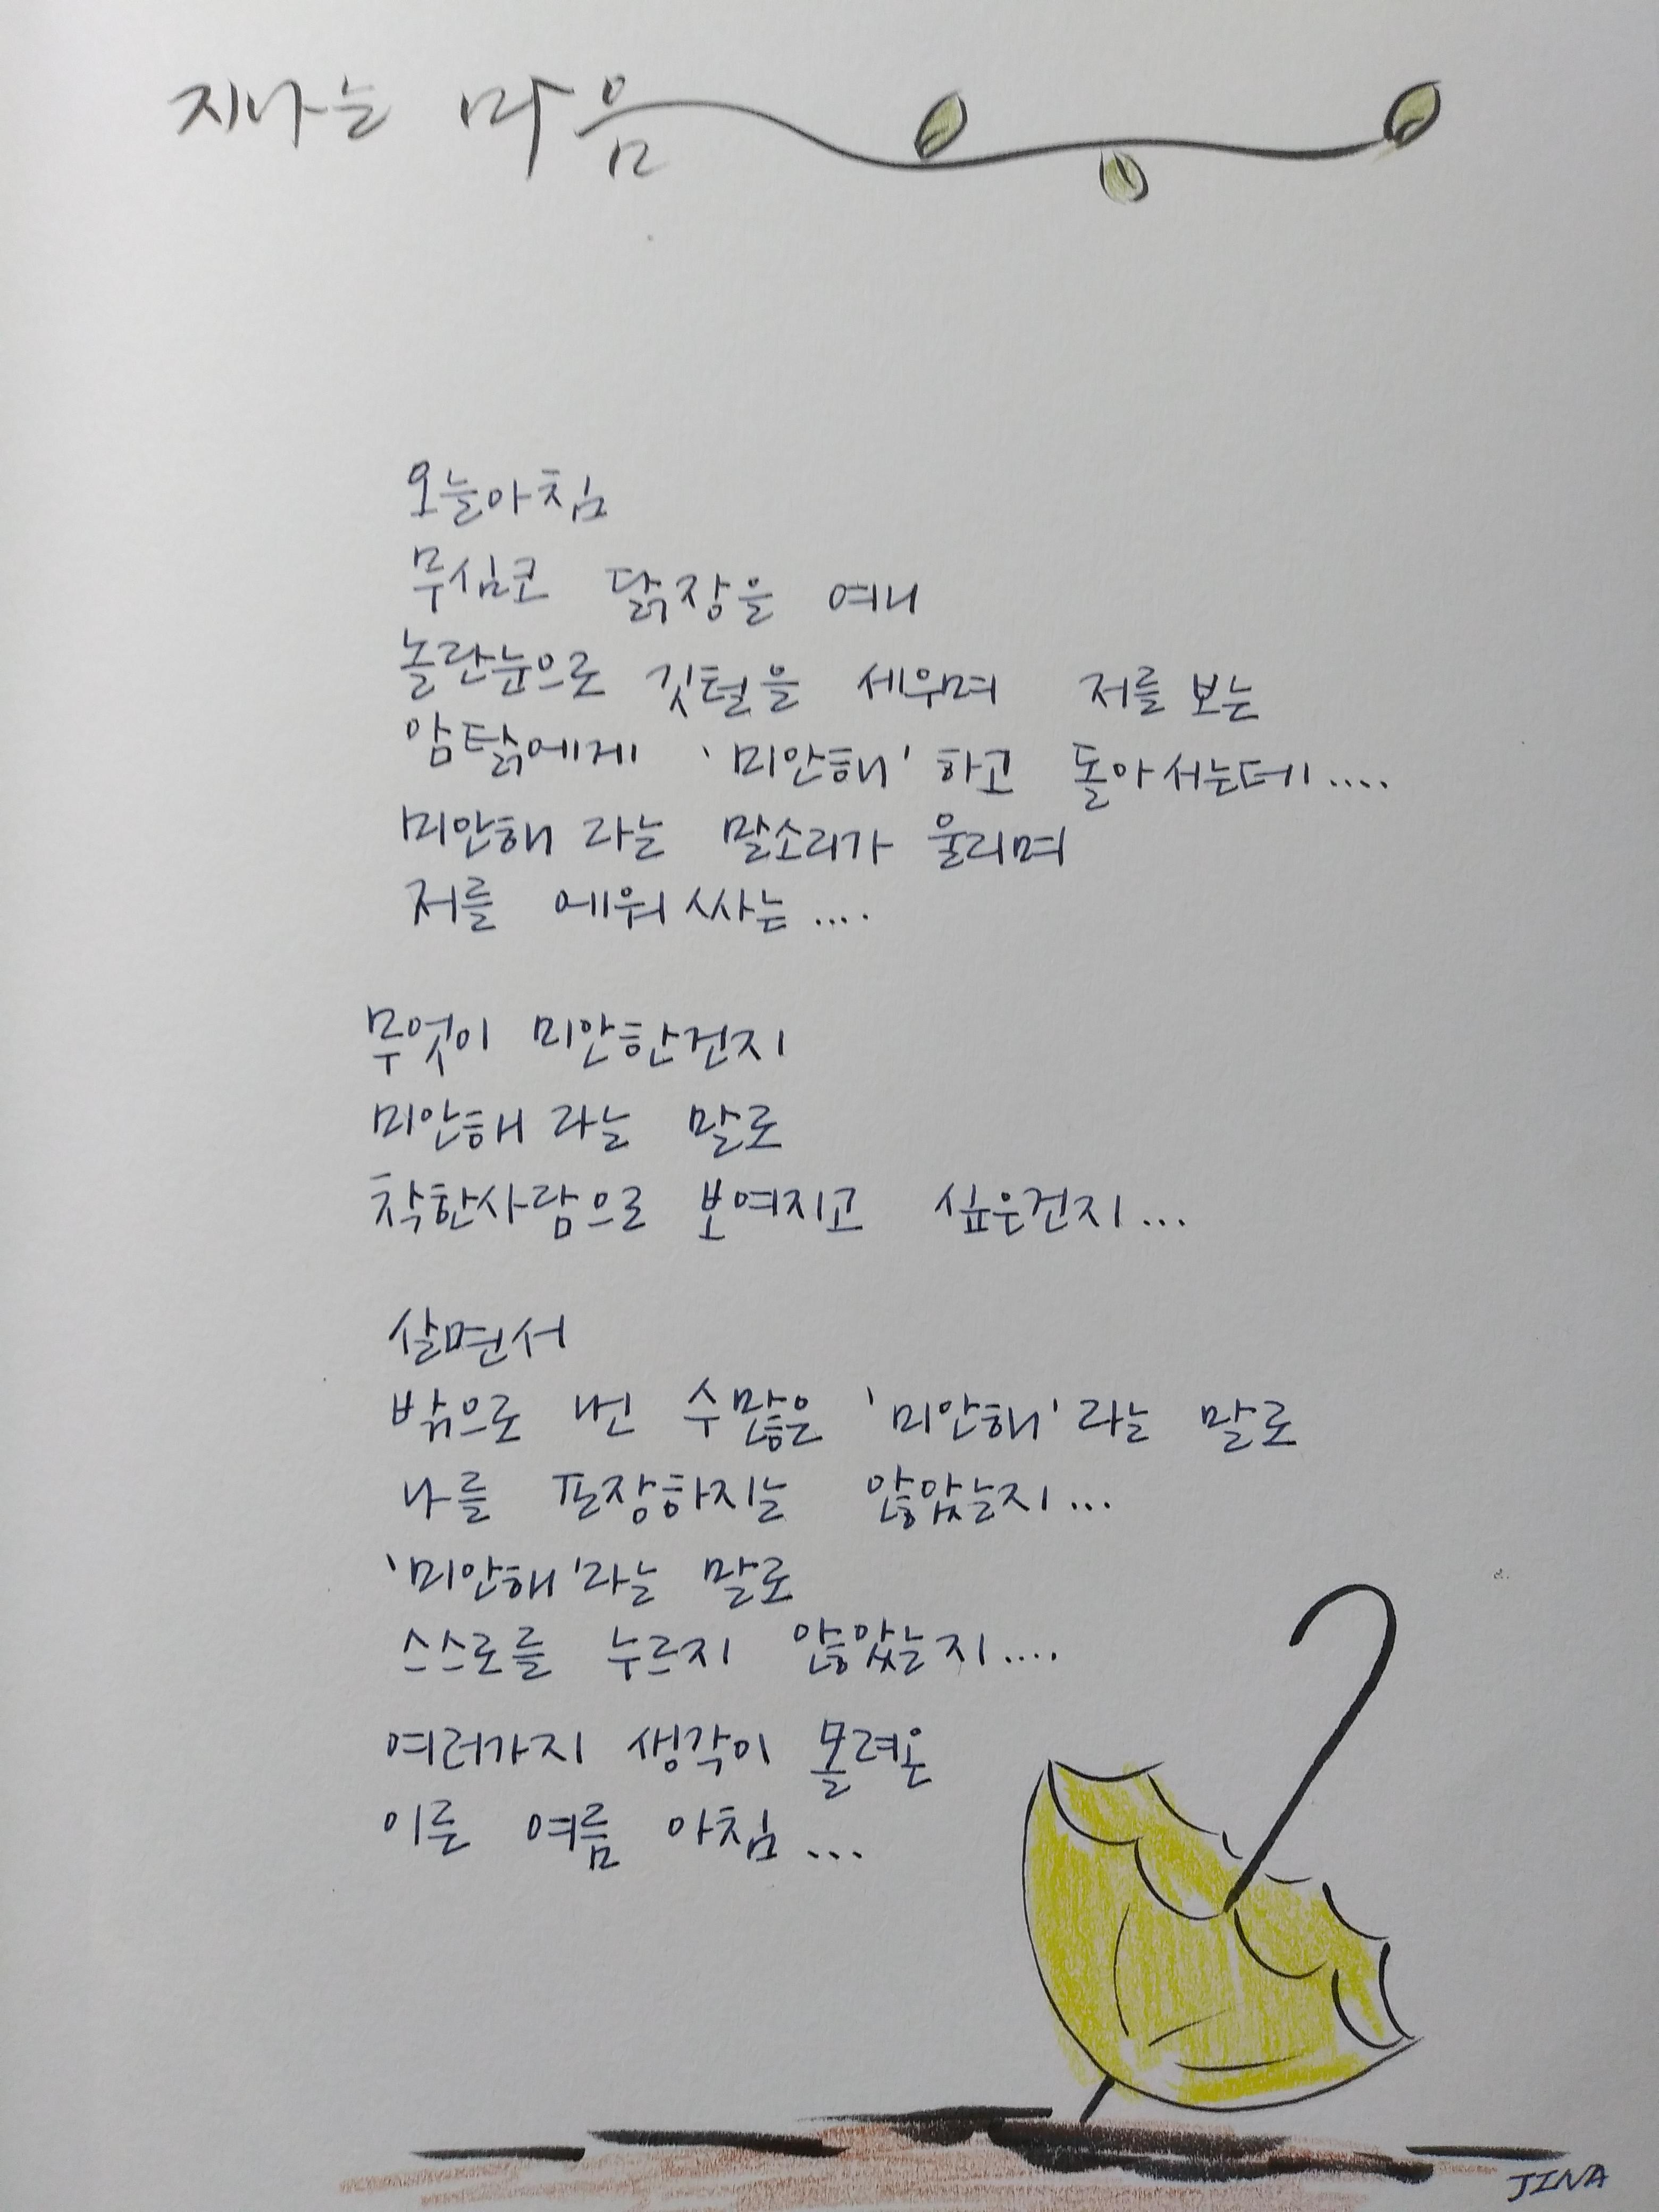 지나는 마음
오늘아침
무심코 닭장을 여니
놀란눈으로 깃털을 세우며 저를 보는
암탉에게 '미안해' 하고 돌아서는데....
미안해 라는 말소리가 울리며
저를 에워싸는....
무엇이 미안한건지
미안해 라는 말로
착한사람으로 보여지고 싶은건지...
살면서
밖으로 낸 수많은 '미안해' 라는 말로
나를 포장하지는 않았는지...
'미안해'라는 말로
스스로를 누르지 않았는지....
여러가지 생각이 몰려온
이른 여름 아침...
JINA